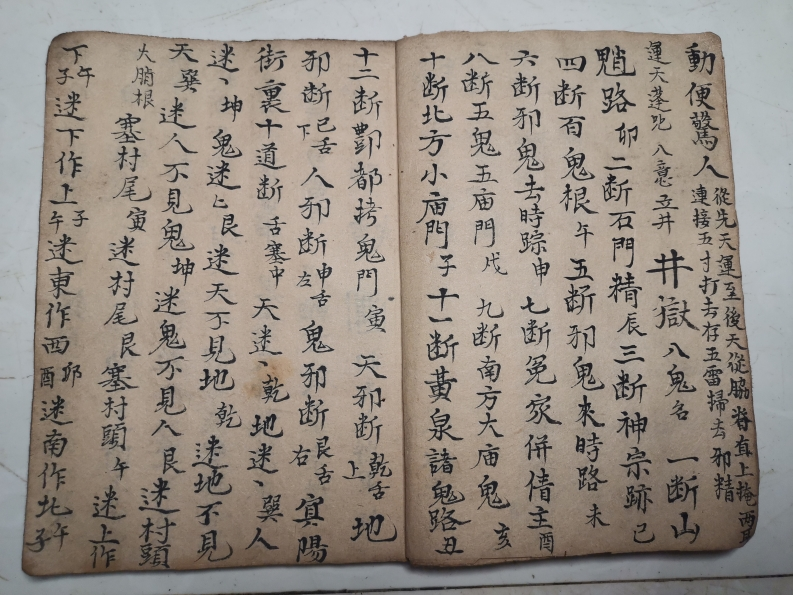 動便驚人 從先天運至後天從脇脊直上掩兩耳
連接五寸打去存五雷掃去邪精
運天蓬咒 八意立井 井獄 八鬼名 一断山
魈路卯 二断石門精辰 三断神宗跡巳
四断百鬼根午 五断邪鬼來時路未
六断邪鬼去時踪申 七断冤家併債主酉
八断五鬼五庙門戌 九断南方大庙鬼亥
十断北方小庙門子 十一断黄泉諸鬼路丑
十二断酆都拷鬼門寅 天邪断乾舌上 地
邪断巳舌下 人邪断申舌左 鬼邪断艮舌右 寘陽
街裏十道断 舌塞中 天迷丶乾 地迷丶巽 人
迷丶坤 鬼迷〻艮 迷天不見地乾 迷地不見
天巽 迷人不見鬼坤 迷鬼不見人艮 迷村頭
大腊根 塞村尾寅 迷村尾艮 塞村頭午 迷上作
下午子 迷下作上子午 迷東作西卯酉 迷南作北午子